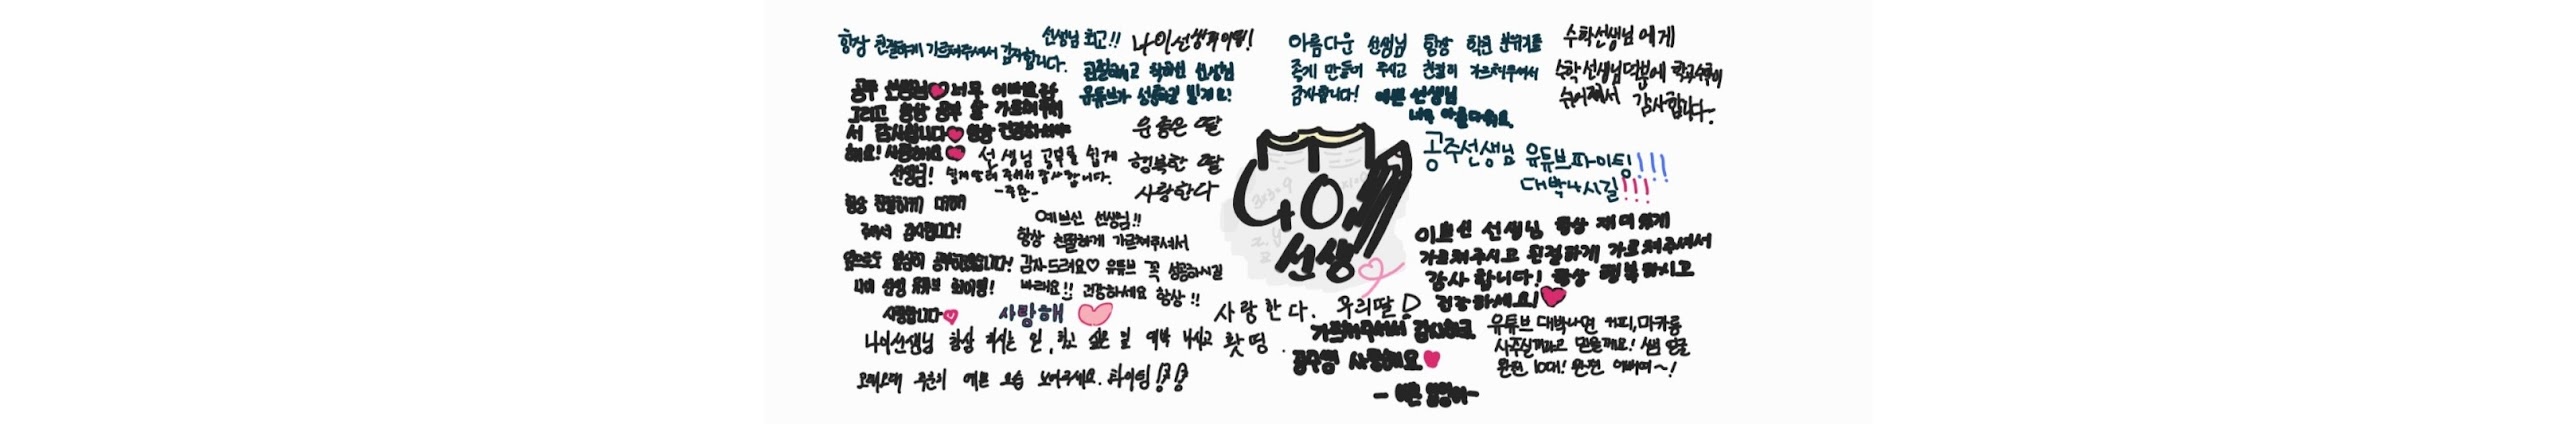 항상 친절하게 가르쳐주셔서 감사합니다.
선생님 최고!!
나이선생 화이띵!
친절하시고 착하신 선생님
유튜브가 성공하길 빌게요!
공주 선생님 너무 이뻐요
그리고 항상 공부 잘 가르쳐줘
서 감사합니다 항상 건강하셔야
해요! 사랑해요
선생님!
선생님 공부를 쉽게
쉽게 알려 주셔서 감사합니다.
운 좋은 딸
행복한 딸
사랑한다
항상 친절하게 대해
줘서 감사합니다!
앞으로도 열심히 공부하겠습니다!
나이 선생 유튜브 화이팅!
사랑합니다
예쁘신 선생님!!
항상 친절하게 가르쳐주셔서
감사드려요♡ 유튜브 꼭 성공하시길
바래요!! 건강하세요 항상!!
사랑해
나이선생님 항상 하시는 일, 하고 싶은 일 대박 나시고 홧띵.
오래오래 주은이 예쁜 모습 보여주세요. 화이팅!!
아름다운 선생님 항상 학원 분위기를
좋게 만들어 주시고 친절히 가르쳐주셔서
감사합니다! 예쁜 선생님
너무 아름다워요.
수학선생님에게
수학선생님덕분에 학교수학이
쉬어져서 감사합니다~
공주선생님 유튜브파이팅!!!
대박나시길!!!
나이
선생
이쁘신 선생님 항상 재미있게
가르쳐주시고 친절하게 가르쳐주셔서
감사합니다! 항상 행복하시고
건강하세요!
사랑한다. 우리딸!
가르쳐주셔서 감사해요
공주쌤 사랑해요
유튜브 대박나면 커피, 마카롱
사주실꺼라고 믿을께요! 쌤 얼굴
완전 10대! 완전 예뻐여~!